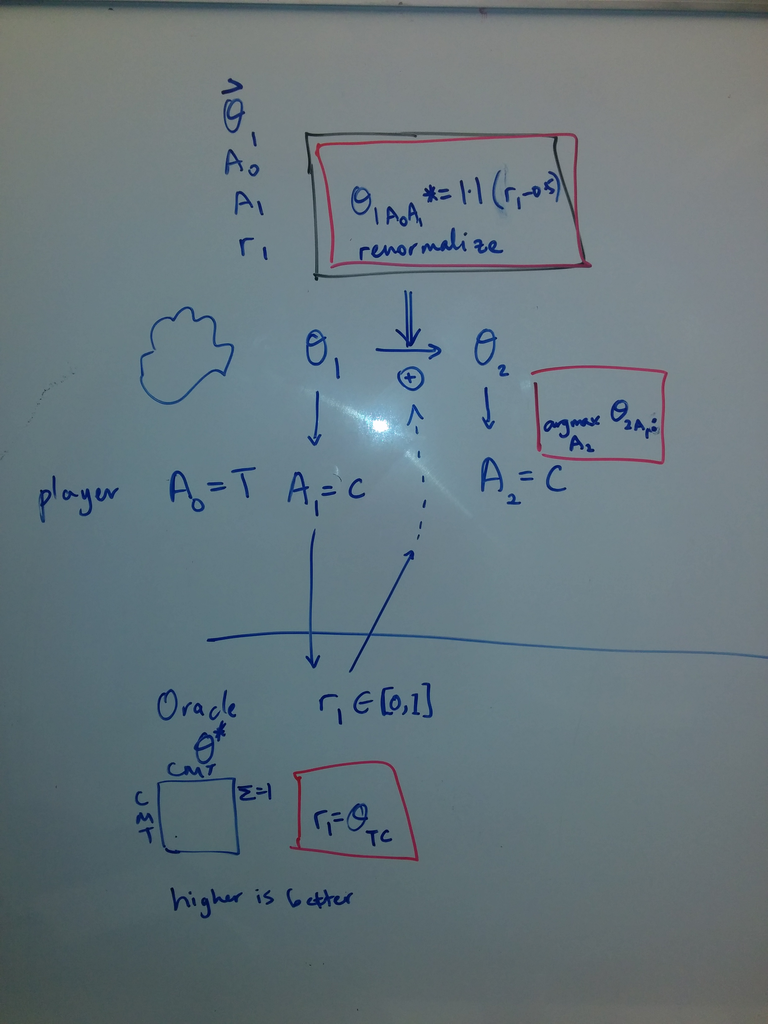 θ⃗₁
A₀
A₁
r₁
θ₁A₀A₁ *= 1.1 (r₁-0.5)
renormalize
θ₁ → θ₂
⊕
argmax θ₂A₁:
A₂
player A₀ = T A₁ = C A₂ = C
Oracle r₁ ∈ [0,1]
θ*
CMT
C
M
T
Σ=1
r₁ = θTC
higher is better